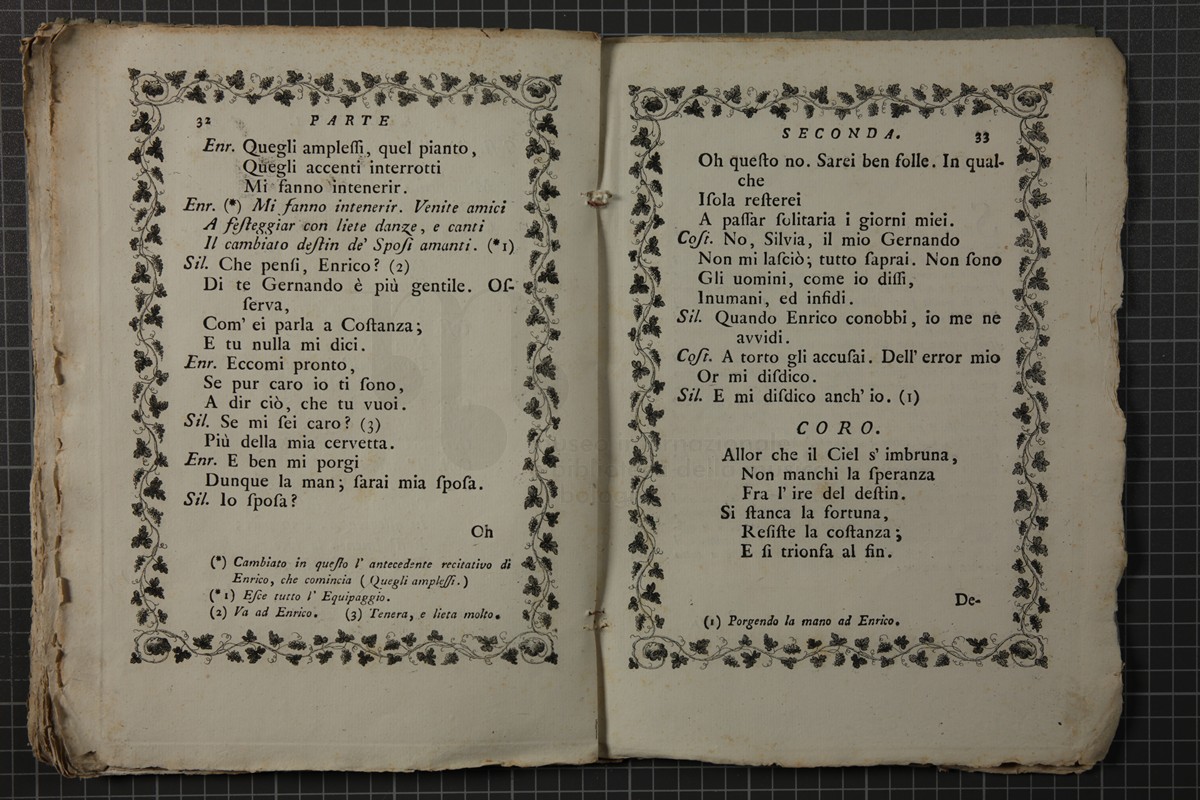 32 PARTE
Enr. Quegli ampleſſi, quel pianto,
Quegli accenti interrotti
Mi fanno intenerir.
Enr. (*) Mi fanno intenerir. Venite amici
A feſteggiar con liete danze, e canti
Il cambiato deſtin de' Spoſi amanti. (*1)
Sil. Che penſi, Enrico? (2)
Di te Gernando è più gentile. Oſ-
ſerva,
Com' ei parla a Coſtanza;
E tu nulla mi dici.
Enr. Eccomi pronto,
Se pur caro io ti ſono,
A dir ciò, che tu vuoi.
Sil. Se mi ſei caro? (3)
Più della mia cervetta.
Enr. E ben mi porgi
Dunque la man; ſarai mia ſpoſa.
Sil. Io ſpoſa?
Oh
(*) Cambiato in queſto l' antecedente recitativo di
Enrico, che comincia (Quegli ampleſſi.)
(*1) Eſce tutto l' Equipaggio.
(2) Va ad Enrico. (3) Tenera, e lieta molto.
SECONDA. 33
Oh queſto no. Sarei ben folle. In qual-
che
Iſola reſterei
A paſſar ſolitaria i giorni miei.
Coſt. No, Silvia, il mio Gernando
Non mi laſciò; tutto ſaprai. Non ſono
Gli uomini, come io diſſi,
Inumani, ed infidi.
Sil. Quando Enrico conobbi, io me ne
avvidi.
Coſt. A torto gli accuſai. Dell' error mio
Or mi diſdico.
Sil. E mi diſdico anch' io. (1)
CORO.
Allor che il Ciel s' imbruna,
Non manchi la ſperanza
Fra l' ire del deſtin.
Si ſtanca la fortuna,
Reſiſte la coſtanza;
E ſi trionfa al fin.
De-
(1) Porgendo la mano ad Enrico.